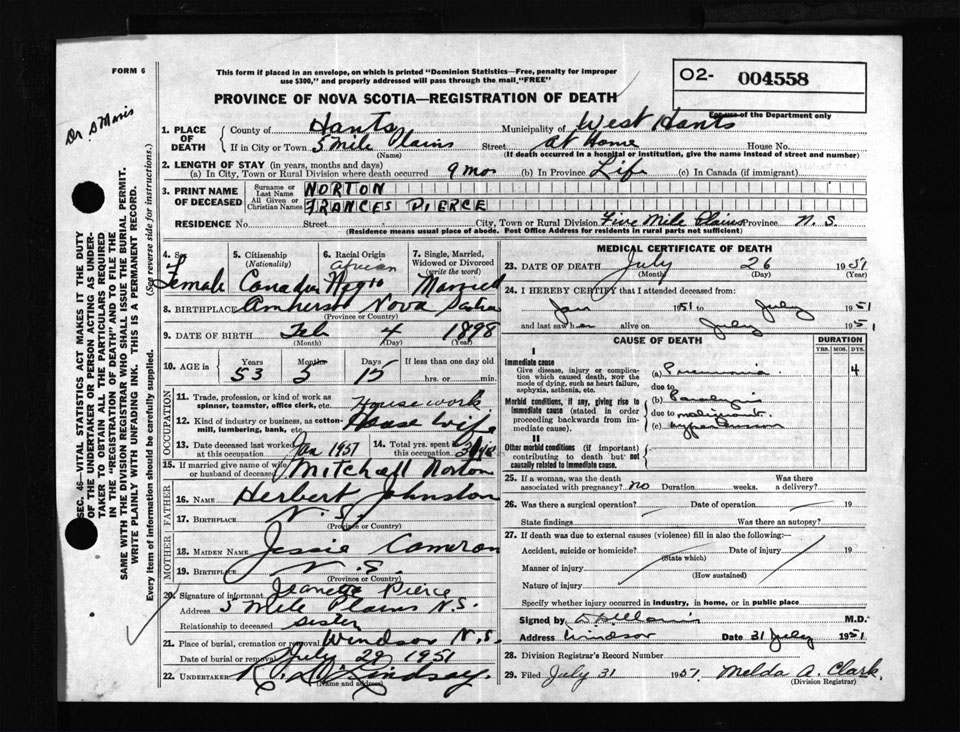 FORM 6
This form if placed in an envelope, on which is printed "Dominion Statistics—Free, penalty for improper
use $300," and properly addressed will pass through the mail "FREE"
O2- 004558
For use of the Department only
PROVINCE OF NOVA SCOTIA—REGISTRATION OF DEATH
1. PLACE OF DEATH
County of Hants
Municipality of West Hants
If in City or Town 5 Mile Plains Street at Home House No.
(Name) (If death occurred in a hospital or institution, give the name instead of street and number)
2. LENGTH OF STAY (in years, months and days)
(a) In City, Town or Rural Division where death occurred 9 mos (b) In Province Life (c) In Canada (if immigrant)
3. PRINT NAME OF DECEASED
Surname or Last Name NORTON
All Given or Christian Names FRANCES PIERCE
RESIDENCE No. Street City, Town or Rural Division Five Mile Plains Province N. S.
(Residence means usual place of abode. Post Office Address for residents in rural parts not sufficient)
4. Sex Female
5. Citizenship (Nationality) Canadian
6. Racial Origin African Negro
7. Single, Married, Widowed or Divorced (write the word) Married
8. BIRTHPLACE Amherst Nova Scotia
(Province or Country)
9. DATE OF BIRTH Feb 4 1898
(Month) (Day) (Year)
10. AGE in Years Months Days If less than one day old
53 5 hrs. or min.
OCCUPATION
11. Trade, profession, or kind of work as spinner, teamster, office clerk, etc. House work
12. Kind of industry or business, as cotton-mill, lumbering, bank, etc. House wife
13. Date deceased last worked at this occupation Jan 1951
14. Total yrs. spent in this occupation
15. If married give name of wife or husband of deceased Mitchell Norton
FATHER
16. NAME Herbert Johnston
17. BIRTHPLACE N. S.
(Province or Country)
MOTHER
18. MAIDEN NAME Jessie Cameron
19. BIRTHPLACE N. S.
(Province or Country)
20. Signature of informant Jeanette Pierce
Address 5 Mile Plains N.S.
Relationship to deceased sister
21. Place of burial, cremation or removal Windsor N.S.
Date of burial or removal July 29 1951
22. UNDERTAKER Lindsay.
(Name and address)
MEDICAL CERTIFICATE OF DEATH
23. DATE OF DEATH July 26 1951
(Month) (Day) (Year)
24. I HEREBY CERTIFY that I attended deceased from:
Jan 1951 to July 1951
and last saw her alive on July 1951
CAUSE OF DEATH
DURATION
YRS. MOS. DYS.
I
Immediate cause
Give disease, injury or complication which caused death, NOT the mode of dying, such as heart failure, asphyxia, asthenia, etc.
(a) Pneumonia 4
due to
Morbid conditions, if any, giving rise to immediate cause (stated in order proceeding backwards from immediate cause).
(b) Paralysis
due to malignant
(c) hypertension
II
Other morbid conditions (if important) contributing to death but not causally related to immediate cause.
25. If a woman, was the death associated with pregnancy? no Duration weeks. Was there a delivery?
26. Was there a surgical operation? Date of operation 19
State findings Was there an autopsy?
27. If death was due to external causes (violence) fill in also the following:
Accident, suicide or homicide? Date of injury 19
(State which)
Manner of injury
(How sustained)
Nature of injury
Specify whether injury occurred in industry, in home, or in public place
Signed by M.D.
Address Windsor Date 31 July 1951
28. Division Registrar's Record Number
29. Filed July 31 1951 Melda A. Clark
(Division Registrar)
SEC. 46—VITAL STATISTICS ACT MAKES IT THE DUTY
OF THE UNDERTAKER OR PERSON ACTING AS UNDER-
TAKER TO OBTAIN ALL THE PARTICULARS REQUIRED
IN THE "REGISTRATION OF DEATH" AND TO FILE THE
SAME WITH THE DIVISION REGISTRAR WHO SHALL ISSUE THE BURIAL PERMIT.
WRITE PLAINLY WITH UNFADING INK. THIS IS A PERMANENT RECORD.
Every item of information should be carefully supplied. (See reverse side for instructions.)